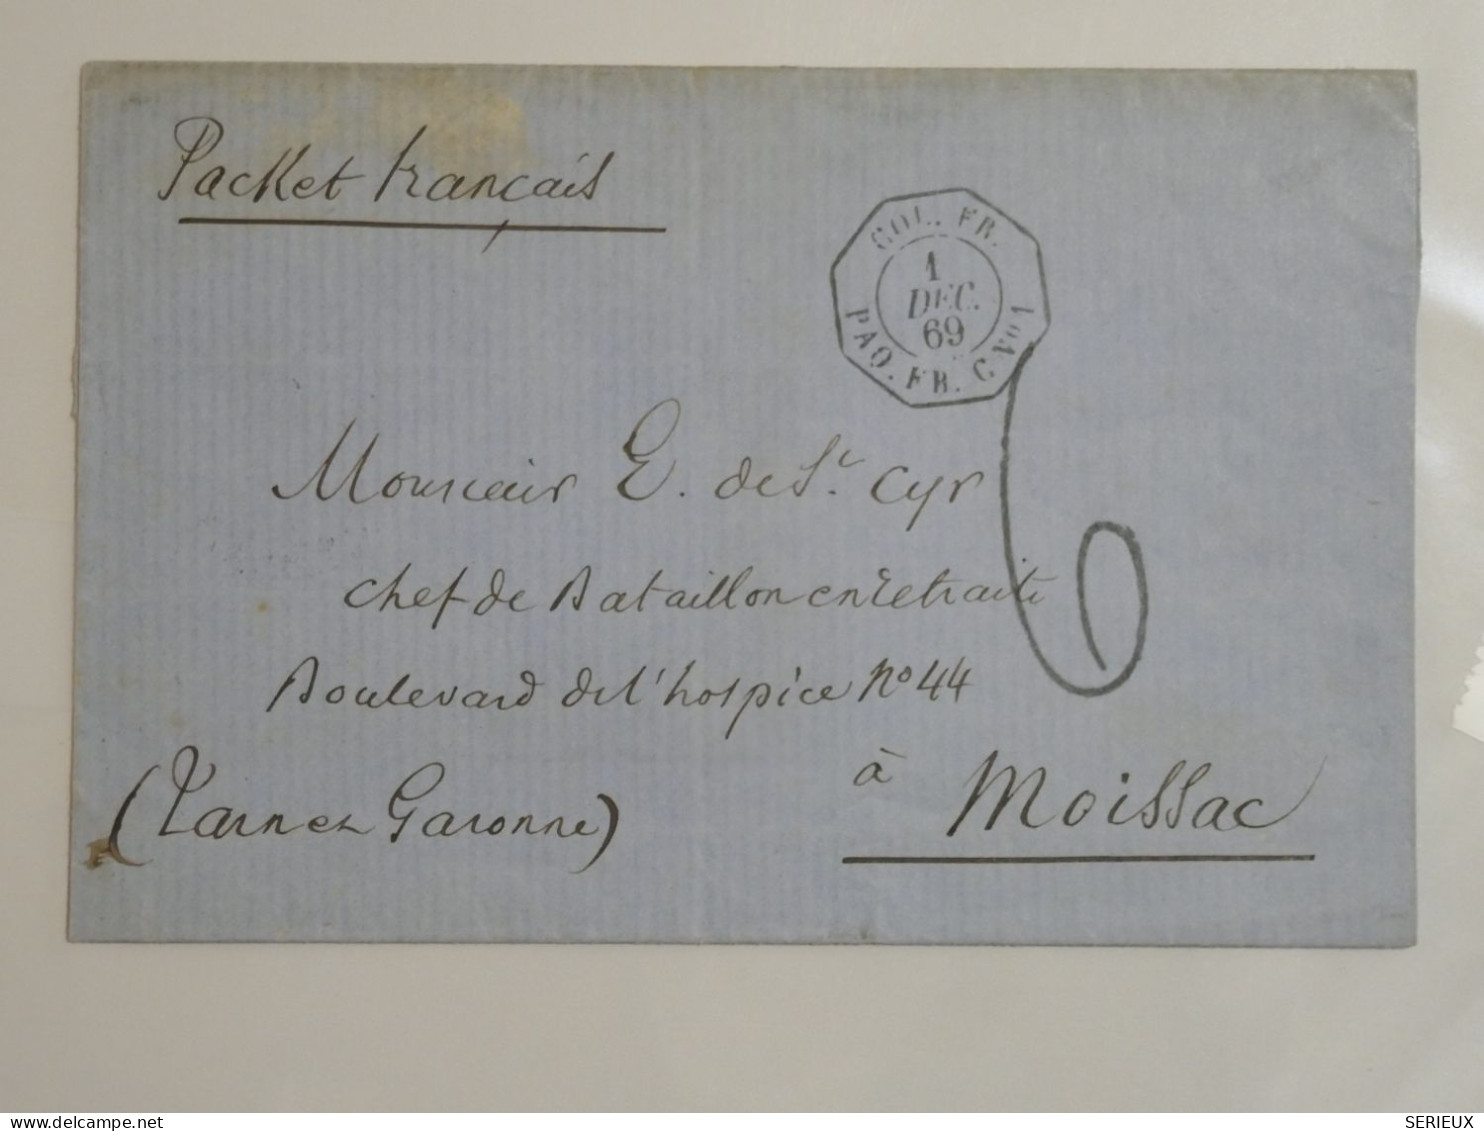 Packet français
COL. FR.
1
DEC.
69
PAQ. FR. C Nº 1
6
Monsieur E. de St. Cyr
chef de Bataillon en retraite
Boulevard de l'hospice Nº 44
à Moissac
(Tarn et Garonne)
delcampe.net
SERIEUX